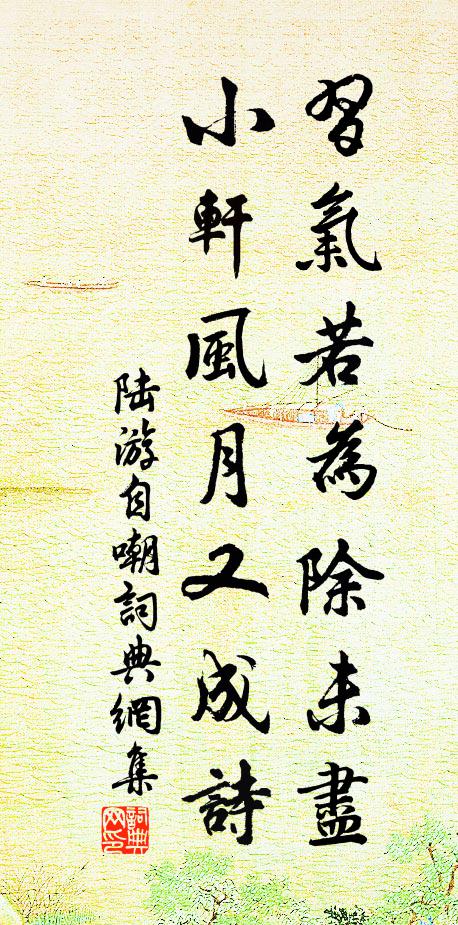 習氣若為除未盡
小軒風月又成詩
陸游自嘲詞典網集
詞典网印